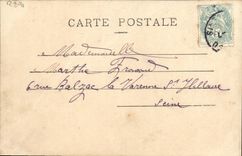 CARTE POSTALE
Mademoiselle
Marthe
6 rue Balzac la Varenne St Hilaire
Seine